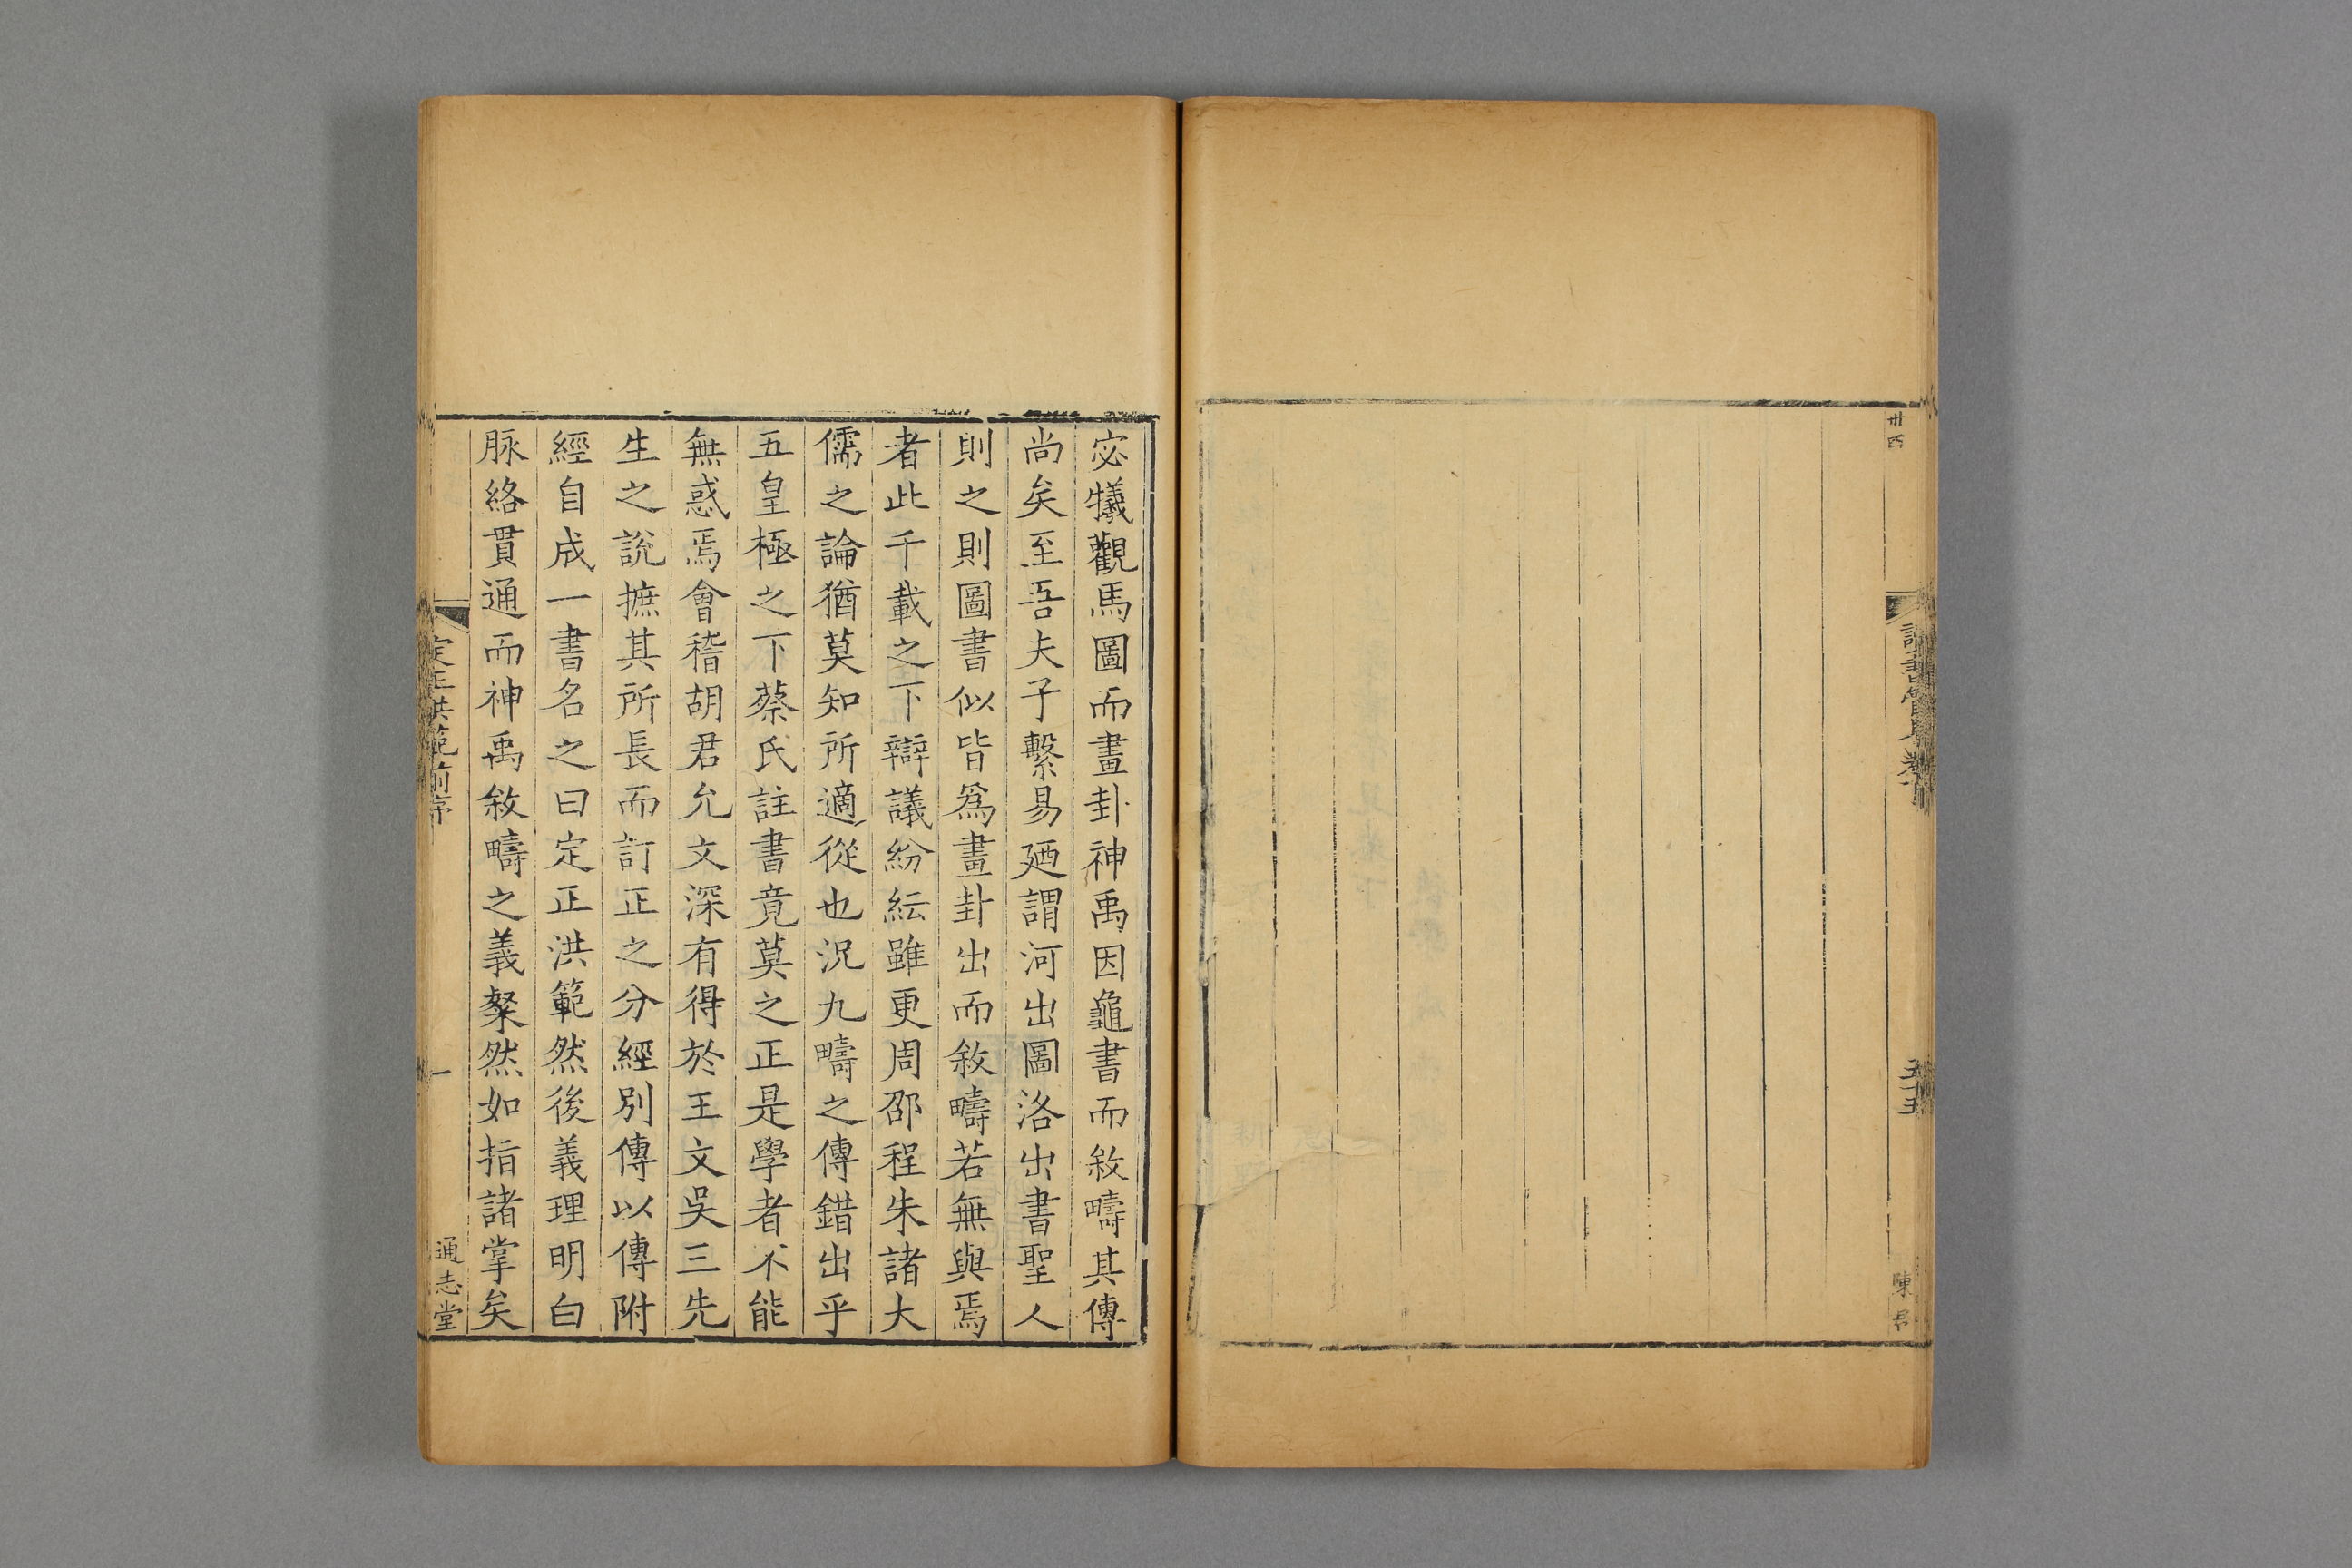 卅四
讀書管見卷下
五十五
陳君
宓犧觀馬圖而畫卦神禹因龜書而敘疇其傳
尚矣至吾夫子繫易廼謂河出圖洛出書聖人
則之則圖書似皆爲畫卦出而敘疇若無與焉
者此千載之下辯議紛紜雖更周邵程朱諸大
儒之論猶莫知所適從也況九疇之傳錯出乎
五皇極之下蔡氏註書竟莫之正是學者不能
無惑焉會稽胡君允文深有得於王文吳三先
生之說摭其所長而訂正之分經別傳以傳附
經自成一書名之曰定正洪範然後義理明白
脉絡貫通而神禹敘疇之義粲然如指諸掌矣
定正洪範前序
一
通志堂